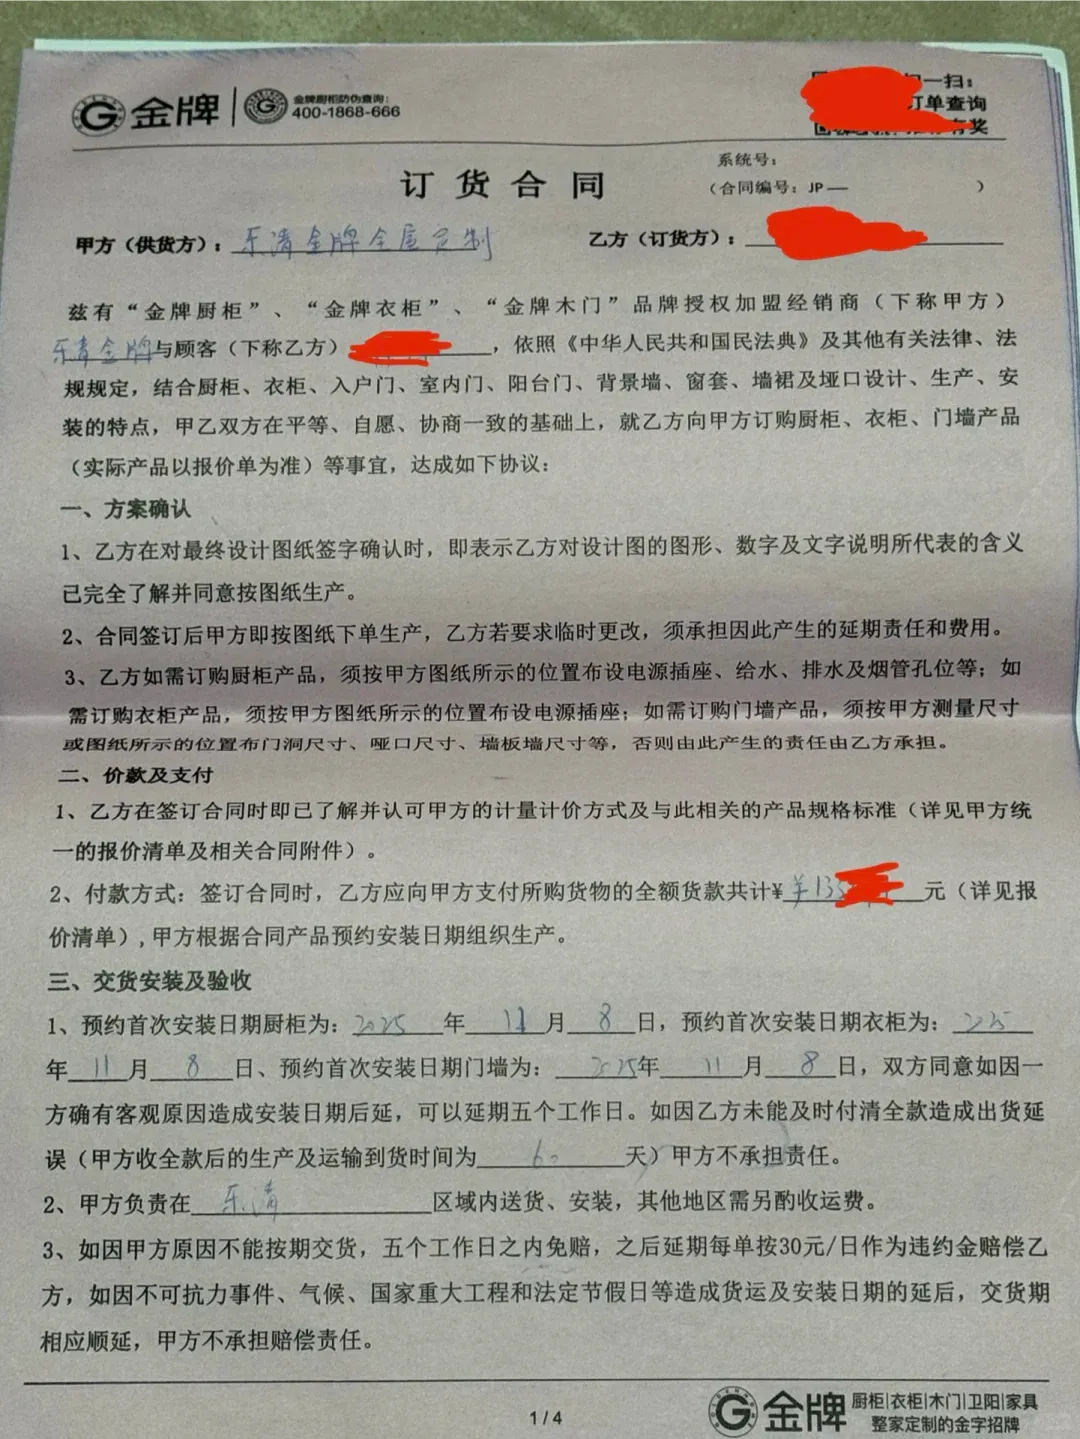 金牌 金牌厨柜防伪查询:
400-1868-666
扫一扫:
订单查询
有奖
系统号:
订货合同
(合同编号: JP— )
甲方(供货方): 乐清金牌全屋定制 乙方(订货方):
兹有“金牌厨柜”、“金牌衣柜”、“金牌木门”品牌授权加盟经销商(下称甲方)
乐清金牌与顾客(下称乙方) ,依照《中华人民共和国民法典》及其他有关法律、法
规规定,结合厨柜、衣柜、入户门、室内门、阳台门、背景墙、窗套、墙裙及垭口设计、生产、安
装的特点,甲乙双方在平等、自愿、协商一致的基础上,就乙方向甲方订购厨柜、衣柜、门墙产品
(实际产品以报价单为准)等事宜,达成如下协议:
一、方案确认
1、乙方在对最终设计图纸签字确认时,即表示乙方对设计图的图形、数字及文字说明所代表的含义
已完全了解并同意按图纸生产。
2、合同签订后甲方即按图纸下单生产,乙方若要求临时更改,须承担因此产生的延期责任和费用。
3、乙方如需订购厨柜产品,须按甲方图纸所示的位置布设电源插座、给水、排水及烟管孔位等;如
需订购衣柜产品,须按甲方图纸所示的位置布设电源插座;如需订购门墙产品,须按甲方测量尺寸
或图纸所示的位置布门洞尺寸、哑口尺寸、墙板墙尺寸等,否则由此产生的责任由乙方承担。
二、价款及支付
1、乙方在签订合同时即已了解并认可甲方的计量计价方式及与此相关的产品规格标准(详见甲方统
一的报价清单及相关合同附件)。
2、付款方式:签订合同时,乙方应向甲方支付所购货物的全额货款共计¥ ¥135 元(详见报
价清单),甲方根据合同产品预约安装日期组织生产。
三、交货安装及验收
1、预约首次安装日期厨柜为: 2025 年 11 月 8 日,预约首次安装日期衣柜为: 225
年 11 月 8 日、预约首次安装日期门墙为: 2025年 11 月 8 日,双方同意如因一
方确有客观原因造成安装日期后延,可以延期五个工作日。如因乙方未能及时付清全款造成出货延
误(甲方收全款后的生产及运输到货时间为 60 天)甲方不承担责任。
2、甲方负责在 乐清 区域内送货、安装,其他地区需另酌收运费。
3、如因甲方原因不能按期交货,五个工作日之内免赔,之后延期每单按30元/日作为违约金赔偿乙
方,如因不可抗力事件、气候、国家重大工程和法定节假日等造成货运及安装日期的延后,交货期
相应顺延,甲方不承担赔偿责任。
1/4
金牌 厨柜|衣柜|木门|卫阳|家具
整家定制的金字招牌